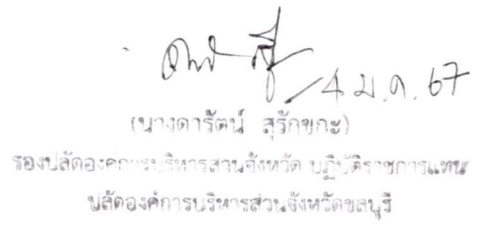 4 ม.ค. 67
(นางดารัตน์ สุรักขกะ)
รองปลัดองค์การบริหารส่วนจังหวัด ปฏิบัติราชการแทน
ปลัดองค์การบริหารส่วนจังหวัดชลบุรี